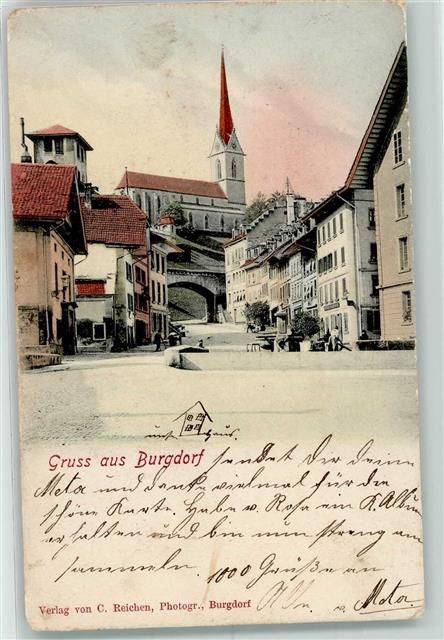 unser Haus.
Gruss aus Burgdorf sendet Dir deine
Meta und danke vielmal für die
schöne Karte. Habe v. Rosa ein K. Album
erhalten und bin nun streng am
sammeln. 1000 Grüße an
Alle v. Meta.
Verlag von C. Reichen, Photogr., Burgdorf